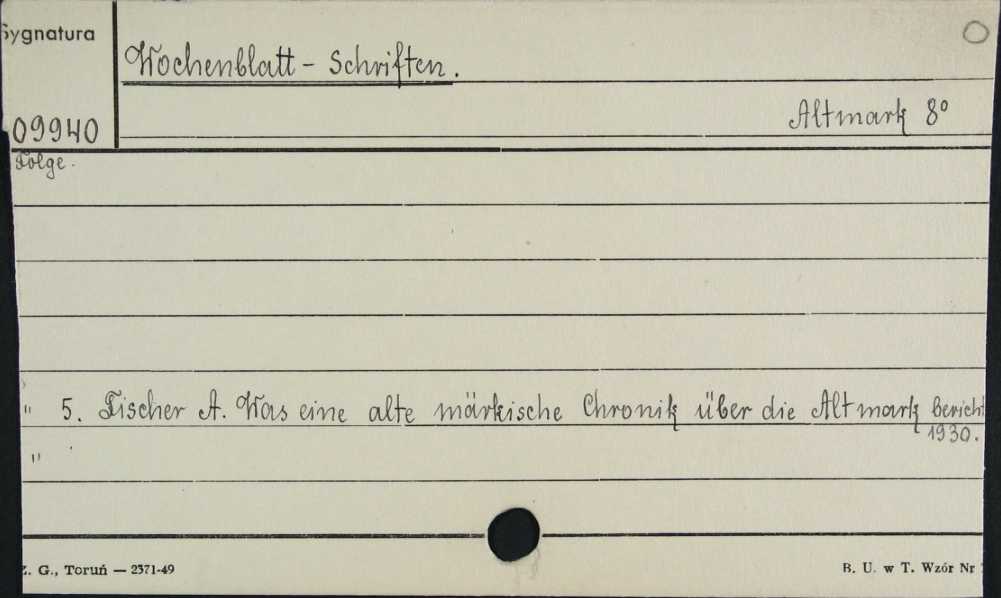 Sygnatura
Wochenblatt - Schriften.
Altmark 8°
09940
Folge.
" 5. Fischer A. Was eine alte märkische Chronik über die Altmark bericht
1930.
"
Z. G., Toruń — 2371-49
B. U. w T. Wzór Nr